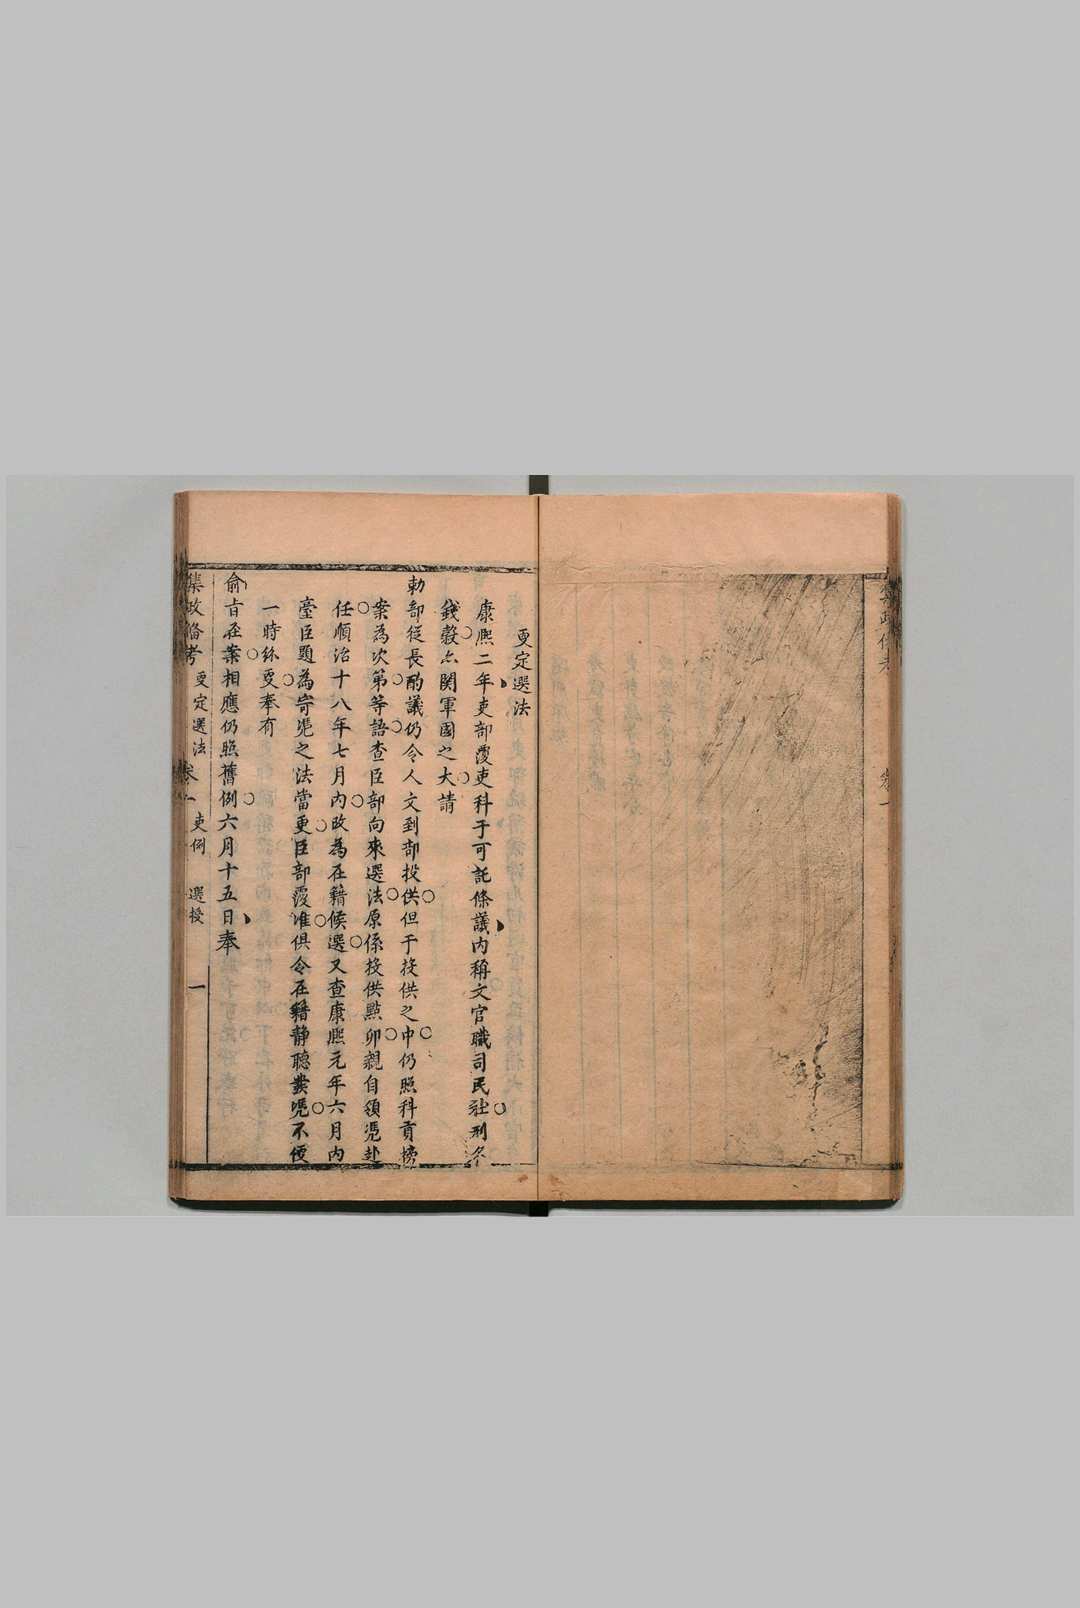 更定選法
康熙二年吏部覆吏科于可託條議內稱文官職司民社刑名
錢穀亦関軍國之大請
勅部從長酌議仍令人文到部投供但于投供之中仍照科貢榜
案為次第等語查臣部向來選法原係投供點卯親自領凴赴
任順治十八年七月內改為在籍候選又查康熙元年六月內
臺臣題為寄凴之法當更臣部覆准俱令在籍静聽㪵凴不便
一時紛更奉有
俞旨在案相應仍照舊例六月十五日奉
集政俻考 更定選法 卷一 吏例 選授 一